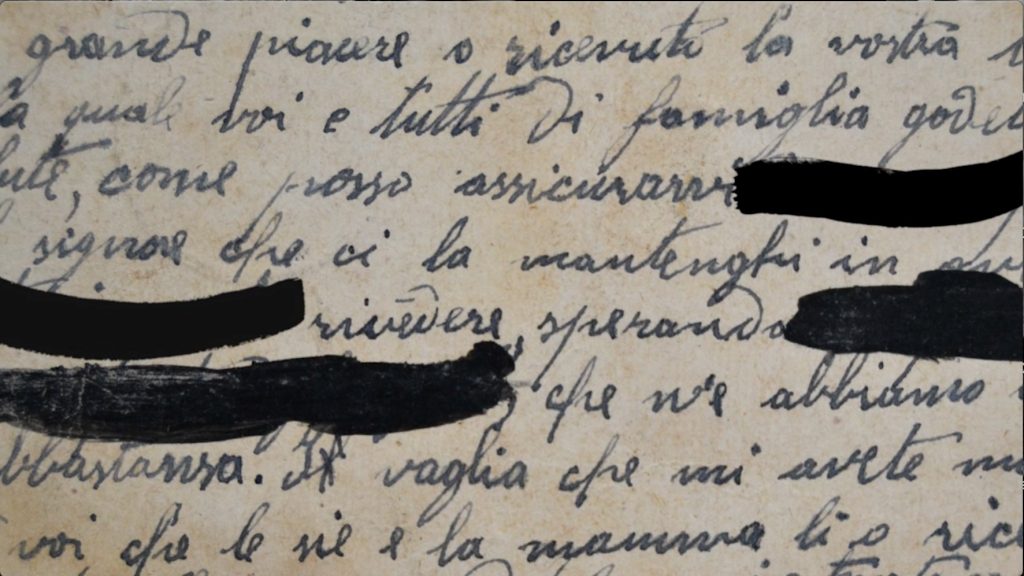 grande piacere o ricevuto la vostra
quale voi e tutti di famiglia
come posso assicurarvi
signore che ci la mantenghi in
rivedere, sperando
che n'e abbiamo
bbastansa. Il vaglia che mi avete
voi che le sie e la mamma li o